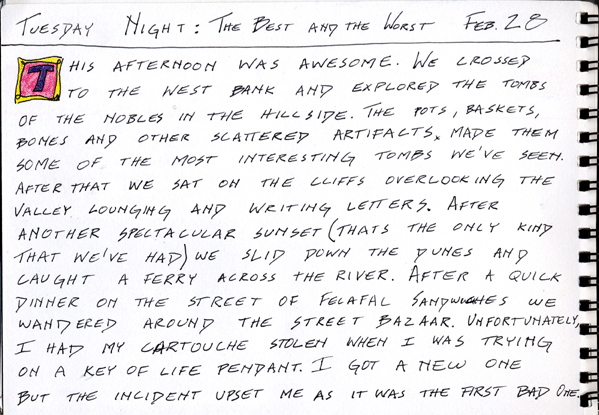 TUESDAY NIGHT: THE BEST AND THE WORST FEB. 28
THIS AFTERNOON WAS AWESOME. WE CROSSED
TO THE WEST BANK AND EXPLORED THE TOMBS
OF THE NOBLES IN THE HILLSIDE. THE POTS, BASKETS,
BONES AND OTHER SCATTERED ARTIFACTS, MADE THEM
SOME OF THE MOST INTERESTING TOMBS WE'VE SEEN.
AFTER THAT WE SAT ON THE CLIFFS OVERLOOKING THE
VALLEY LOUNGING AND WRITING LETTERS. AFTER
ANOTHER SPECTACULAR SUNSET (THATS THE ONLY KIND
THAT WE'VE HAD) WE SLID DOWN THE DUNES AND
CAUGHT A FERRY ACROSS THE RIVER. AFTER A QUICK
DINNER ON THE STREET OF FELAFAL SANDWICHES WE
WANDERED AROUND THE STREET BAZAAR. UNFORTUNATELY,
I HAD MY CARTOUCHE STOLEN WHEN I WAS TRYING
ON A KEY OF LIFE PENDANT. I GOT A NEW ONE
BUT THE INCIDENT UPSET ME AS IT WAS THE FIRST BAD ONE.